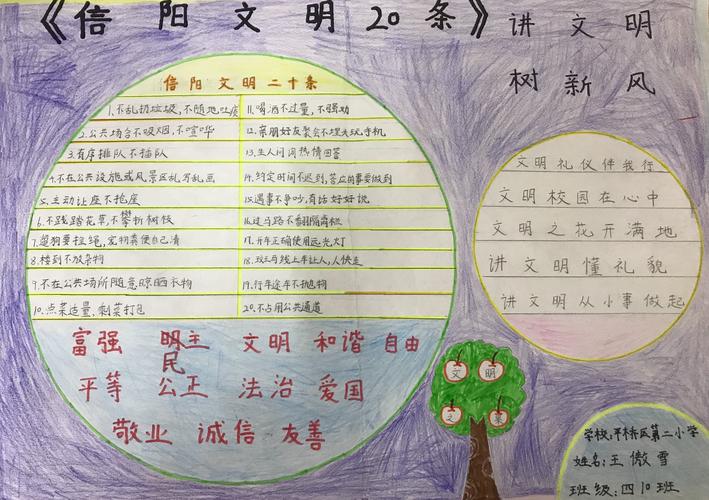 《信阳文明20条》
讲文明
树新风
信阳文明二十条
1.不乱扔垃圾,不随地吐痰
2.公共场合不吸烟,不喧哗
3.有序排队不插队
4.不在公共设施或风景区乱写乱画
5.主动让座不抢座
6.不践踏花草,不攀折树枝
7.遛狗要拉绳,宠物粪便自己清
8.楼到不放杂物
9.不在公共场所随意晾晒衣物
10.点菜适量,剩菜打包
11.喝酒不过量,不强劝
12.亲朋好友聚会不埋头玩手机
13.生人问询热情回答
14.约定时间不迟到,答应的事要做到
15.遇事不争吵,有话好好说
16.过马路不翻隔离栏
17.开车正确使用远光灯
18.斑马线上车让人,人快走
19.行车途中不抛物
20.不占用公共通道
富强 明主 文明 和谐 自由
民
平等 公正 法治 爱国
敬业 诚信 友善
文明礼仪伴我行
文明校园在心中
文明之花开满地
讲文明懂礼貌
讲文明从小事做起
文 明
之
学校:平桥区第二小学
姓名:王傲雪
班级:四10班